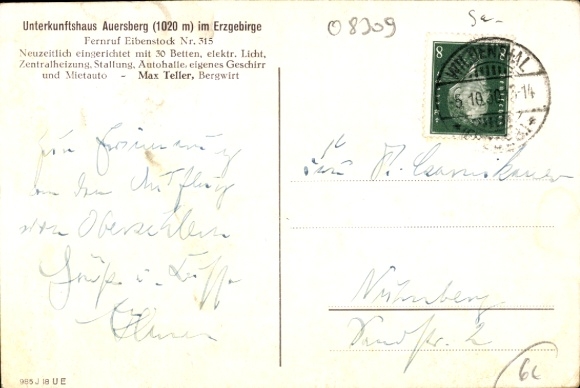 Unterkunftshaus Auersberg (1020 m) im Erzgebirge
Fernruf Eibenstock Nr. 315
Neuzeitlich eingerichtet mit 30 Betten, elektr. Licht,
Zentralheizung, Stallung, Autohalle, eigenes Geschirr
und Mietauto - Max Teller, Bergwirt
08309
8
WIESENTHAL
-5.10.30. 3-14
Zur Erinnerung
an den Ausflug
von
Grüße u. Küsse
Nürnberg
Sandstr. 2
985 J 18 U E